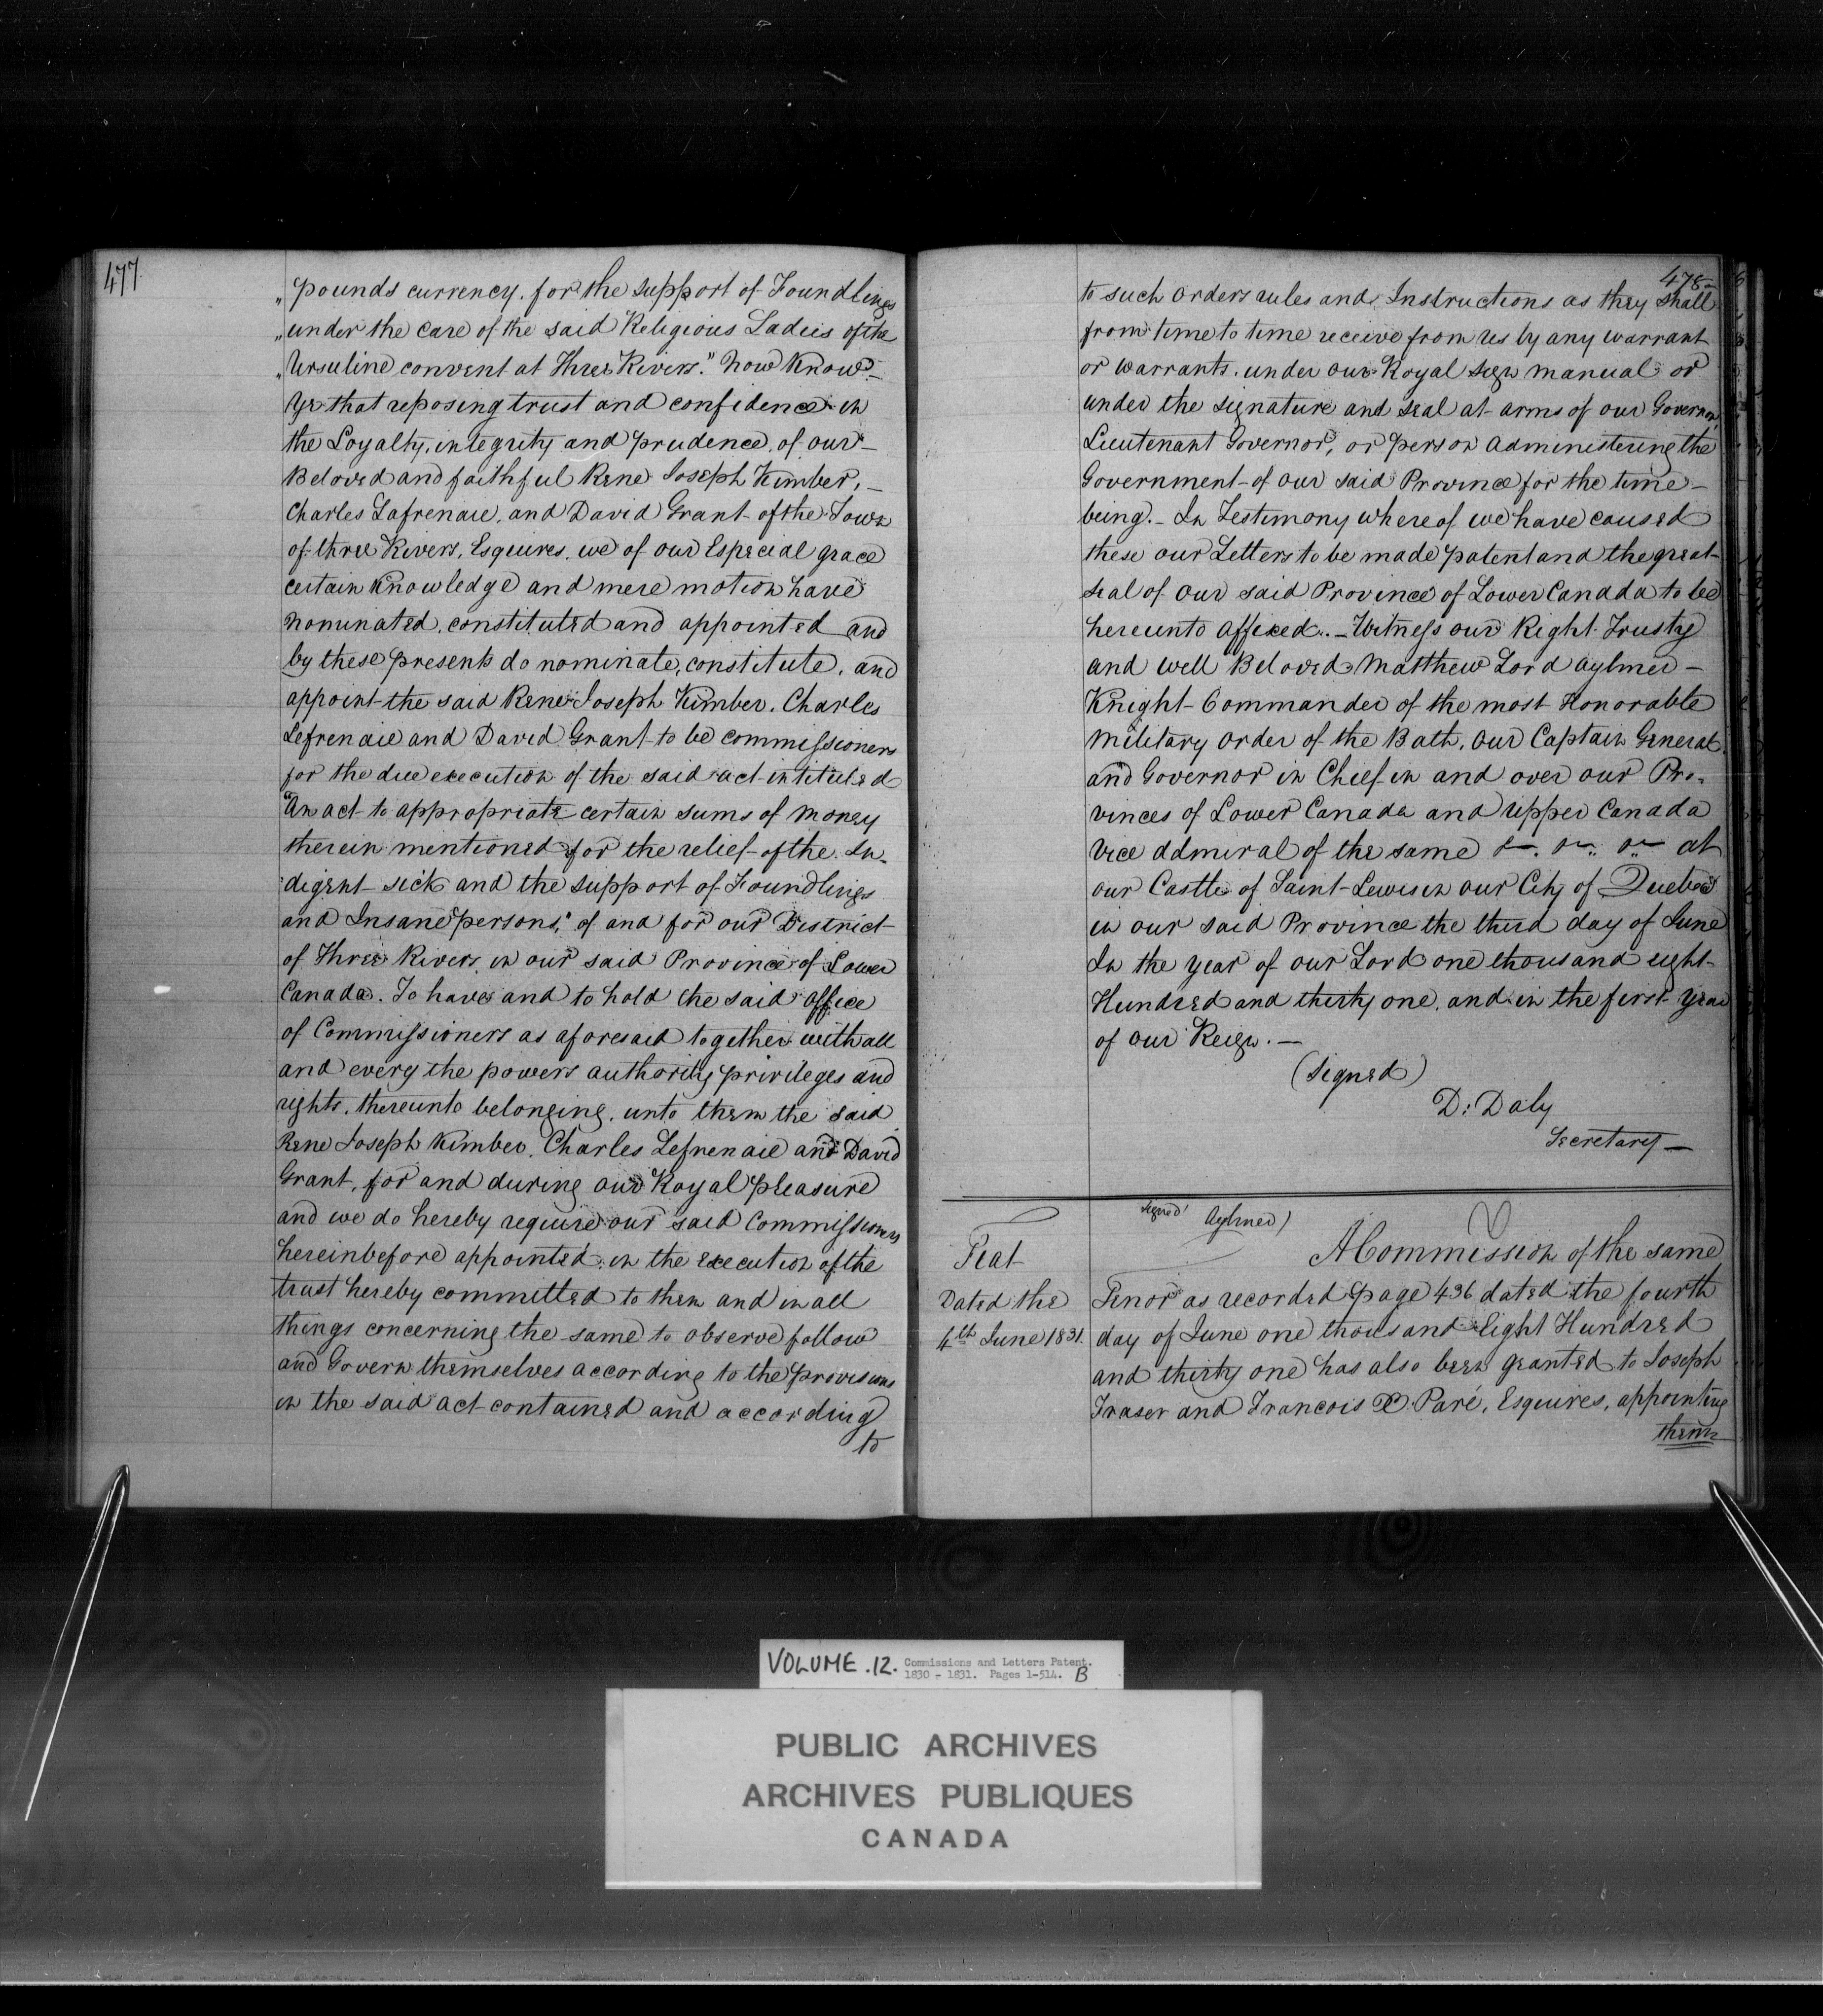 477
"pounds currency. for the support of Foundlings
"under the care of the said Religious Ladies of the
"Ursuline convent at Three Rivers." Now Know–
Ye that reposing trust and confidence in
the Loyalty, integrity and prudence, of our–
Beloved and faithful Rene Joseph Kimber, –
Charles Lafrenaie, and David Grant of the Town
of three Rivers, Esquires, we of our Especial grace
certain Knowledge and mere motion have
nominated, constituted and appointed and
by these presents do nominate, constitute, and
appoint the said Rene Joseph Kimber, Charles
Lefrenaie and David Grant to be commissioners
for the due execution of the said act intituled
"An act to appropriate certain sums of money
therein mentioned for the relief of the In-
digent sick and the support of Foundlings
and Insane persons," of and for our District
of Three Rivers in our said Province of Lower
Canada. To have and to hold the said office
of Commissioners as aforesaid together with all
and every the powers authority privileges and
rights, thereunto belonging, unto them the said
Rene Joseph Kimber, Charles Lefrenaie and David
Grant, for and during our Royal pleasure
and we do hereby require our said Commissioners
hereinbefore appointed in the execution of the
trust hereby committed to them and in all
things concerning the same to observe follow
and Govern themselves according to the provisions
in the said act contained and according
to
478–
to such orders rules and Instructions as they shall
from time to time receive from us by any warrant
or warrants, under our Royal sign manual or
under the signature and seal at arms of our Governor,
Lieutenant Governor, or person administering the
Government of our said Province for the time–
being.– In Testimony whereof we have caused
these our Letters to be made patent and the great
seal of our said Province of Lower Canada to be
hereunto affixed.. – Witness our Right Trusty
and well Beloved Matthew Lord Aylmer –
Knight Commander of the most Honorable
military order of the Bath, our Captain General
and Governor in Chief in and over our Pro-
vinces of Lower Canada and upper Canada
Vice admiral of the same &. &. &. at
our Castle of Saint Lewis in our City of Quebec
in our said Province the third day of June
In the year of our Lord one thousand eight
Hundred and thirty one, and in the first year
of our Reign. –
(Signed)
D: Daly
Secretary –
Signed Aylmer)
Fiat
Dated the
4th June 1831.
A Commission of the same
Tenor as recorded page 436 dated the fourth
day of June one thousand Eight Hundred
and thirty one has also been granted to Joseph
Fraser and Francois X. Paré, Esquires, appointing
them
VOLUME .12. Commissions and Letters Patent.
1830 - 1831. Pages 1-514. B
PUBLIC ARCHIVES
ARCHIVES PUBLIQUES
CANADA